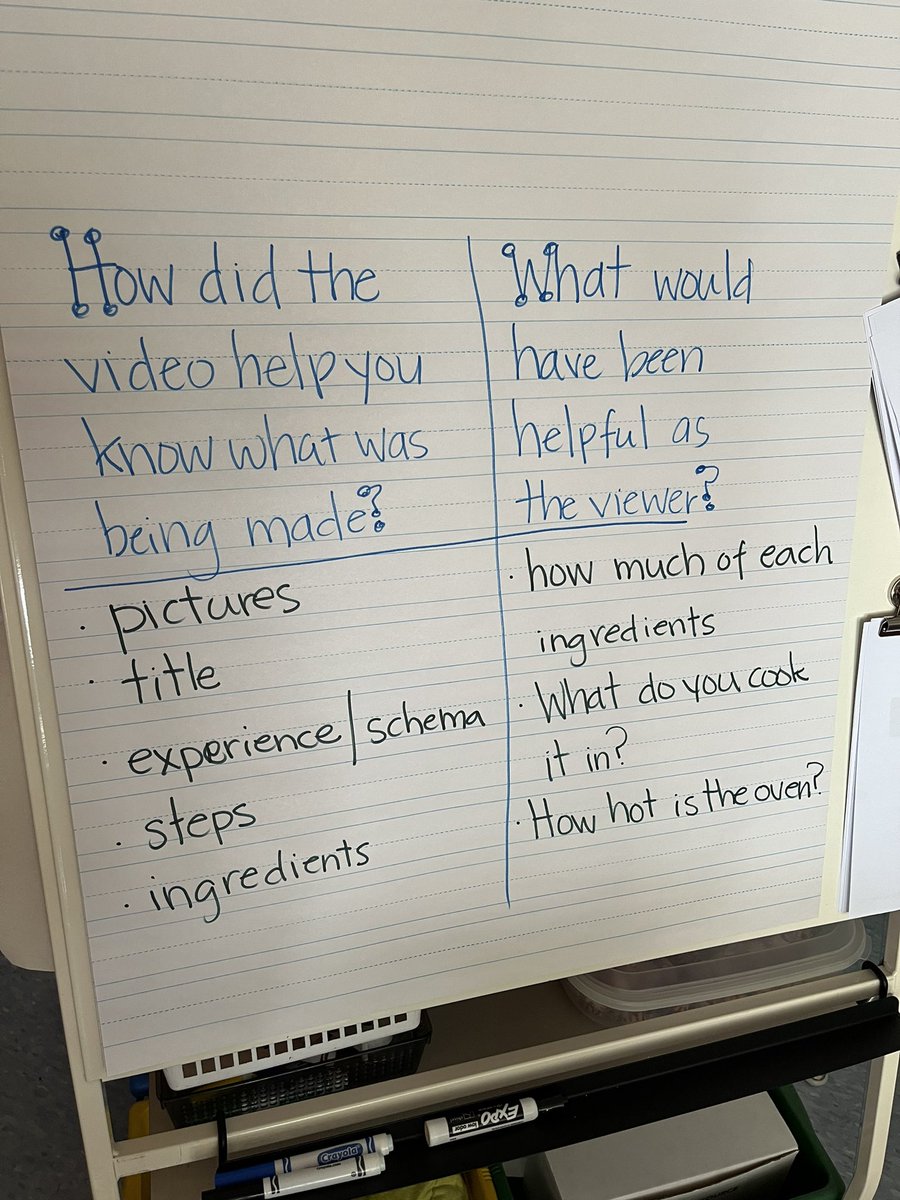 How did the
video help you
know what was
being made?
· pictures
· title
· experience/schema
· steps
· ingredients
What would
have been
helpful as
the viewer?
· how much of each
ingredients
· What do you cook
it in?
· How hot is the oven?
EXPO
Crayola